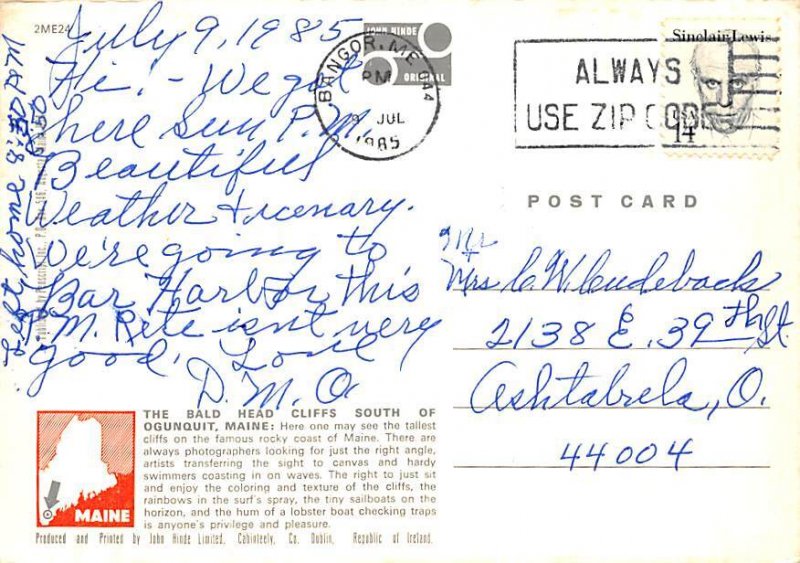 2ME24
July 9, 1985
Hi! - We got
here Sun P.M.
Beautiful
Weather + scenary.
We're going to
Bar Harbor this
P.M. Rite isn't very
good. Love
D.M.O.
Left home 8:30 A.M
JOHN HINDE
ORIGINAL
BANGOR, ME 044
PM
9 JUL
1985
ALWAYS
USE ZIP CODE
Sinclair Lewis
USA
14
POST CARD
Mr +
Mrs C. W. Cudeback
2138 E. 39th St.
Ashtabula, O.
44004
THE BALD HEAD CLIFFS SOUTH OF
OGUNQUIT, MAINE: Here one may see the tallest
cliffs on the famous rocky coast of Maine. There are
always photographers looking for just the right angle,
artists transferring the sight to canvas and hardy
swimmers coasting in on waves. The right to just sit
and enjoy the coloring and texture of the cliffs, the
rainbows in the surf's spray, the tiny sailboats on the
horizon, and the hum of a lobster boat checking traps
is anyone's privilege and pleasure.
MAINE
Produced and Printed by John Hinde Limited, Cabinteely, Co. Dublin, Republic of Ireland.